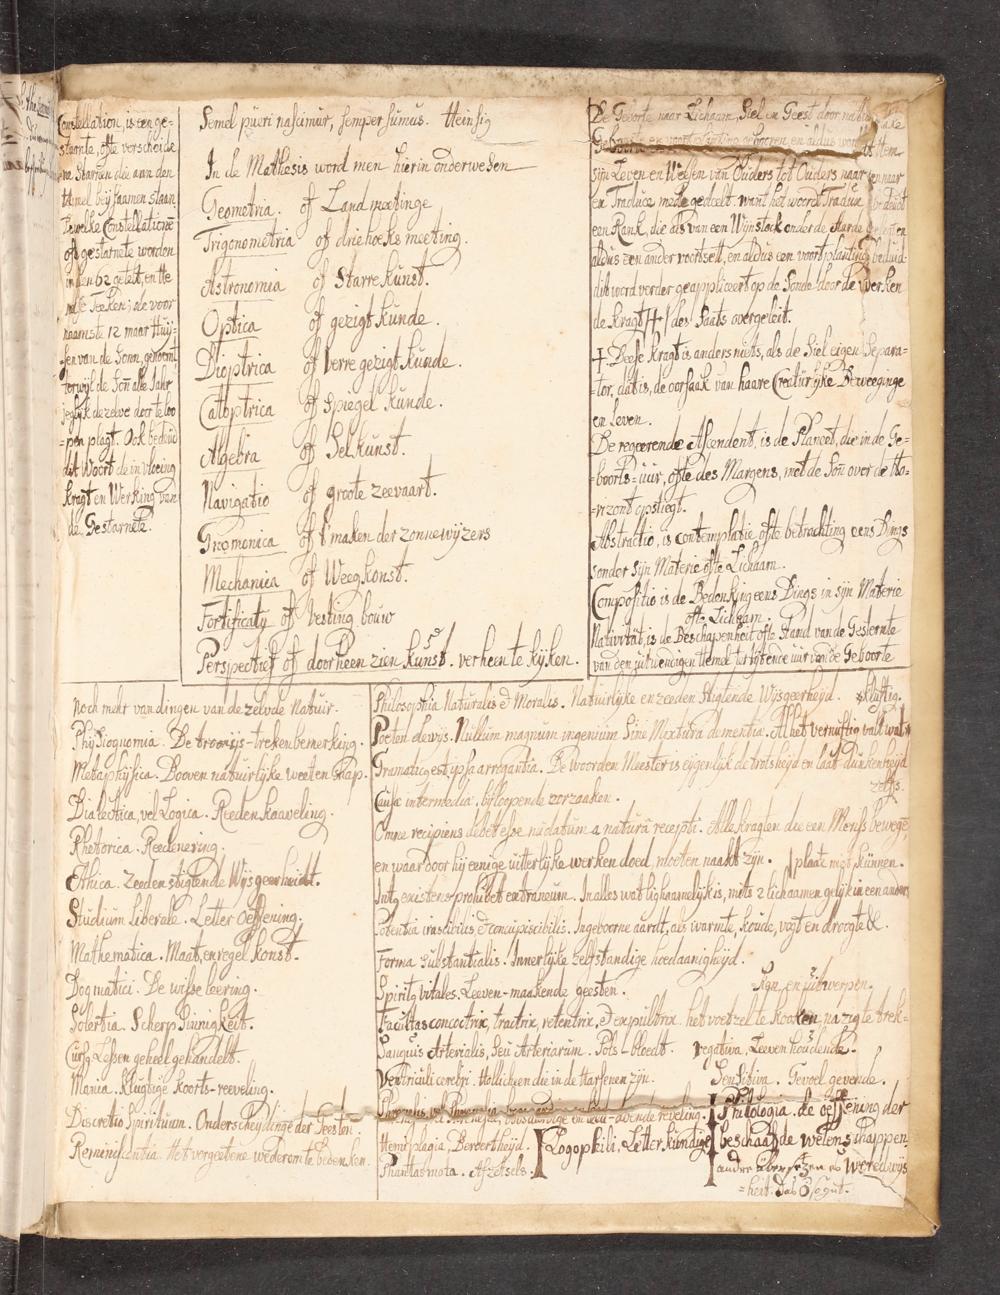 Constellation, is een ge-
starnte, ofte verscheide
Starren die aan den
Hemel bey saamen staan
welke Constellatione
of gestarnete worden
in een 62 getelt, en
Teeken; de voor
naamste 12 maar Huy-
sen van de Sonn, genoemt
terwijl de Son alle Jahr
deselve door te loo
-pen plagt. Ook bedeud
dit Woort de in vloeing
kragt en Werking van
de Gestarnete.
Semel pueri nascimur, semper sumus. Heinsiq
In de Mathesis word men hierin onderwesen
Geometria. of Landmeetinge
Trigonometria of driehoeks meeting.
Astronomia of Starre kunst.
Optica of gezigt kunde.
Dioptrica of verre gezigt kunde.
Catoptrica of Spiegel kunde.
Algebra of Selkunst.
Navigatio of groote zeevaart.
Gnomonica of 't maken der zonnewijzers
Mechanica of Weegkonst.
Fortificaty of Vesting bouw
Perspectief of doorheen zien kunst. verheen te kyken.
De Geboorte naar Lichaam, Siel en Geest door
Geboorte en voort
sijn Leven en Wesen van Ouders tot Ouders naar
en Traduce mede gedeelt. want het woord Tradux
een Rank, die als van een Wijnstok onder de Aarde
aldus een ander voortsett, en aldus een voortplanting beduid
dit word verder geappliceert op de Sonde door de werken
de kragt des Saats overgeleit.
Deese kragt is anders niets, als de Siel eigen Separa=
tor, dat is, de oorsaak van haare Creatuurlyke Beweeginge
en Leven.
De regeerende Ascendent, is de Planeet, die in de Ge=
boorts-uur, ofte des Margens, met de Son over de Ho=
=rizont opstiegt.
Abstractio, is contemplatie ofte betrachting eens Dings
sonder sijn Materie ofte Lichaam.
Compositio is de Bedenking eens Dings in sijn Materie
ofte Lichaam.
Nativität, is de Beschapenheit ofte Stand van de Gesternte
van den uitwendigen Hemel ter tijt ende uir van de Geboorte
Noch mehr van dingen van de zelvde Natuir.
Physiognomia. De troonijs-treken bemerking.
Metaphysica. Booven natuirlyke weeten schap.
Dialectica, vel Logica. Reeden kaaveling.
Rhetorica. Reedenering.
Ethica. Zeeden stigtende Wysgeerheidt.
Studium Liberale. Letter Oeffening.
Mathematica. Maat en regel konst.
Dogmatici. De wisse leering.
Solertia. Scherp Sinnigkeit.
Cursq Lessen geheel gehandelt.
Mania. klugtige koorts-reeveling.
Discretio Spirituum. Onderscheydinge der Geesten.
Reminiscentia. Het vergeetene wederom te bedenken.
Philosophia Naturalis & Moralis. Natuirlyke en zeeden stigtende Wysgeerheyd.
Poeten dewys. Nullum magnum ingenium Sine Mixtura dementia. Al het vernuftig valt wat
skluftig.
Gramatica est ipsa arrogantia. De woorden Meester is eygenlyk de trotsheyd en laat-dunkenheyd
zelfs.
Causæ intermedia. byloopende oorzaaken.
Omne recipiens debet esse nudatum a natura recepti. Alle kragten die een Mensch bewege
en waar door hij eenige uitterlyke werken doed, mooten naakt zyn.
plaats met künnen.
Intq existens prohibet extraneum. In alles wat lighaamelyk is, mits 2 lichaamen gelyk in een ander
Potentia irascibilis & concupiscibilis. Ingeboorne aardt, als warmte, koude, vogt en droogte &.
Forma Substantialis. Innerlyke zelfstandige hoedaanigheyd.
Spiritq vitales. Leeven-maakende geesten.
en, en uitwerpen.
Facultas concoctrix, tractrix, retentrix, & expultrix. het voedzel te kooken, na zig te trek-
Sanguis Arterialis, Seu Arteriarum. Pols-bloedt.
vegativa, Leeven houdende.
Ventriculi cerebri. Hollicheen die in de Harsenen zyn.
Sensitiva. Gevoel gevende.
Hemiplagia, Beroertheyd.
Phantasmata. Afzetsels.
Logophili, Letter kundige
Philologia. de oeffening der
beschaafde wetenschappen
andre übersetzen es Wereldwijs
=heit. das